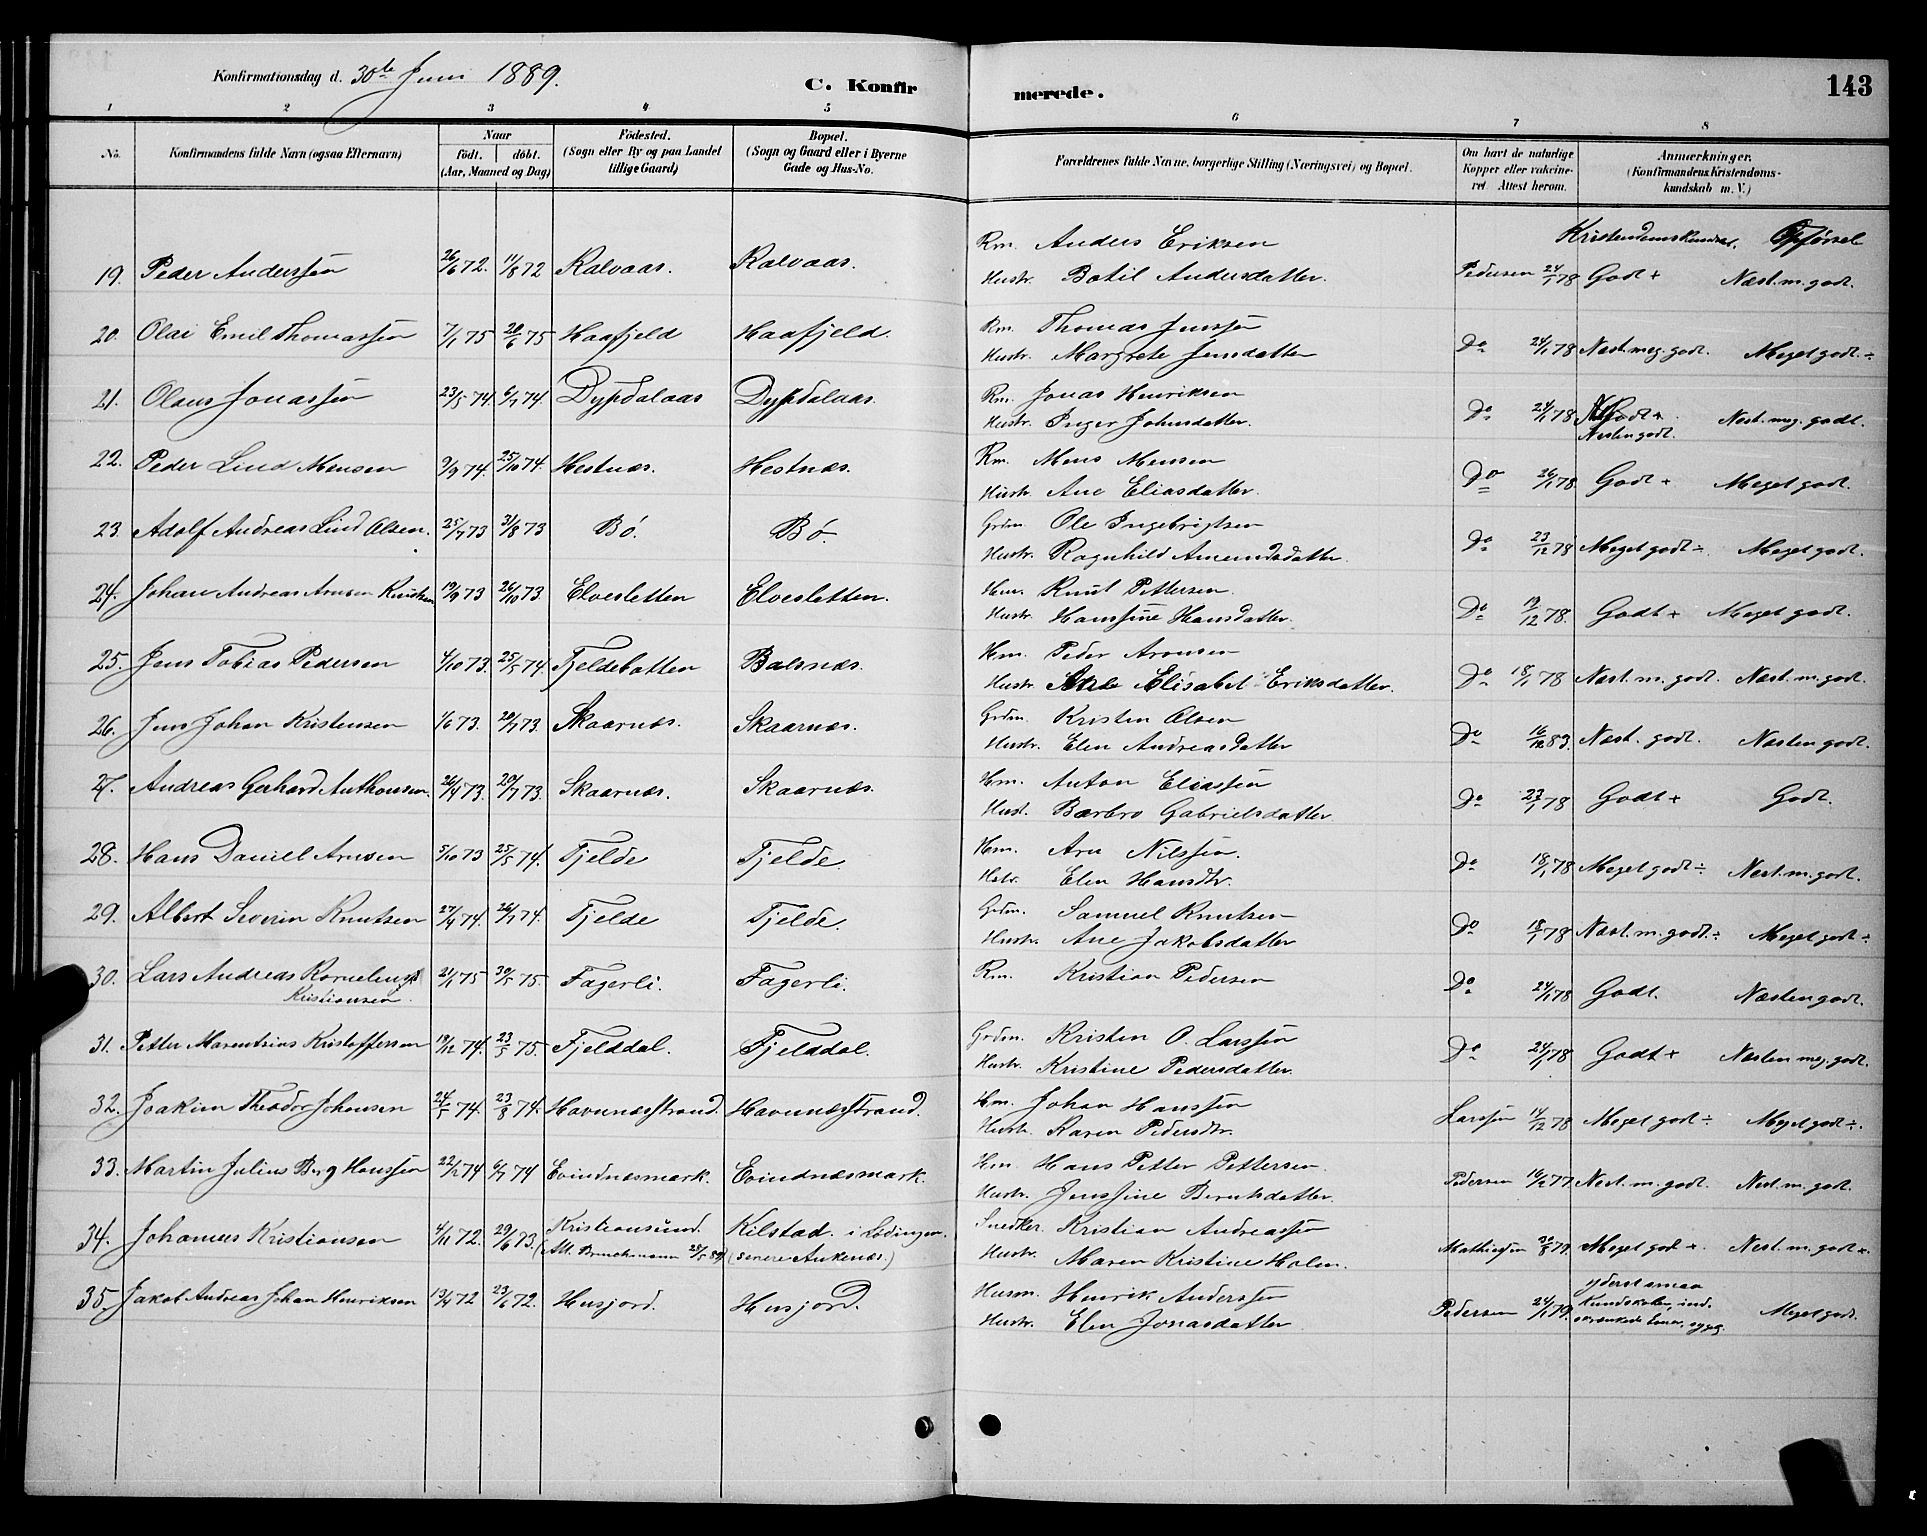 Konfirmationsdag d. 30te Juni 1889.
C. Konfirmerede.
143
1 2 3 4 5 6 7 8
No. Konfirmandens fulde Navn (ogsaa Efternavn) Naar født. døbt. (Aar, Maaned og Dag) Födested. (Sogn eller By og paa Landet tillige Gaard) Bopæl. (Sogn og Gaard eller i Byerne Gade og Hus-No. Forældrenes fulde Navne, borgerlige Stilling (Næringsvei) og Bopæl. Om havt de naturlige Kopper eller vakcineret Attest herom. Anmærkninger. (Konfirmandens Kristendomskundskab m. V.)
Kristendomskundsk. Opførsel
19. Peder Anderssen 26/6 72. 11/8 72 Kalvaas. Kalvaas. Rm. Anders Eriksen
Hustr. Botil Andersdatter. Pedersen 24/1 78 Godt + Næst. m. godt.
20. Olai Emil Thomassen 7/1 75 20/6 75 Haafjeld Haafjeld. Rm. Thomas Jenssen
Hustr. Margrete Jensdatter Do 24/1 78 Næst. meg. godt. Meget godt ÷
21. Olaus Jonassen 23/5 74. 6/7 74. Dypdalaas Dypdalaas. Rm. Jonas Henriksen
Hustr. Inger Johnsdatter. Do 24/1 78 Godt + Næst. meg. godt.
Næsten godt.
22. Peder Lind Monsen 9/9 74. 25/10 74. Hestnæs. Hestnæs. Rm. Mons Monsen
Hustr. Ane Eliasdatter. Do 26/1 78 Godt + Meget godt.
23. Adolf Andreas Lind Olsen. 25/7 73 31/8 73 Bø. Bø. Grdm. Ole Ingebrigtsen
Hustr. Ragnhild Amundsdatter. Do 23/12 78 Meget godt ÷ Meget godt.
24. Johan Andreas Arnsen Knudsen 19/9 73 26/10 73. Elvesletten Elvesletten. Hm. Knut Pettersen.
Hustr. Hanssine Hansdatter. Do 19/12 78. Godt + Meget godt.
25. Jens Tobias Pedersen 4/10 73. 25/5 74. Tjeldebotten Balsnæs. Hm. Peder Aronsen
Hustr. Ane Elisabet Eriksdatter. Do 18/1 78 Næst. m. godt. Næst. m. godt.
26. Jens Johan Kristensen 1/6 73. 20/7 73. Skaarnæs. Skaarnæs. Grdm. Kristen Olsen
Hustr. Elen Andreasdatter Do 16/12 83. Næst. godt. Næsten godt.
27. Andreas Gerhard Anthonsen. 26/4 73. 20/7 73. Skaarnæs. Skaarnæs. Hm. Anton Eliassen
Hust. Barbro Gabrielsdatter Do 23/1 78 Godt + Godt.
28. Hans Daniel Arnsen 5/10 73 25/5 74. Tjelde Tjelde. Hm. Arn Nilssen.
Hstr. Elen Hansdtr. Do 18/1 78 Meget godt ÷ Næst. m. godt.
29. Albert Severin Knutsen 27/4 74. 26/7 74. Tjelde Tjelde. Grdm. Samuel Knutsen
Hustr. Ane Jakobsdatter Do 18/1 78 Næst. m. godt. ÷ Meget godt ÷
30. Lars Andreas Kornelius Kristiansen. 21/1 75 30/5 75. Fagerli. Fagerli. Rm. Kristian Pedersen
Do 24/1 78 Godt. Næsten godt.
31. Petter Marentsius Kristoffersen 19/12 74. 23/5 75. Fjelddal. Fjelddal. Grdm. Kristen O. Larssen
Hustr. Kristine Pedersdatter Do 24/1 78 Godt + Næsten meg. godt.
32. Joakim Theodor Johansen 24/5 74. 23/8 74. Havnnæsstrand. Havnnæsstrand. Hm. Johan Hanssen
Hustr. Karen Pedersdtr. Larssen 14/12 78 Meget godt ÷ Meget godt ÷.
33. Martin Julius Berg Hanssen 22/2 74 6/7 74 Evindnæsmark. Evindnæsmark. Hm. Hans Petter Pettersen.
Hustr. Jenssine Berntsdatter. Pedersen 16/2 77 Næst. m. godt. Næst. m. godt.
34. Johannes Kristiansen 4/11 72. 29/6 73. Kristiansund. Kilstad i Lødingen. Snedker. Kristian Andreassen
(Att. Bruchmann 28/5 89) (senere Ankenæs.) Hustr. Maren Kristine Holm. Mathiesen 30/8 79. Meget godt +. Næst. m. godt +.
35. Jakob Andreas Johan Henriksen 13/4 72 23/6 72. Husjord. Husjord. Husm. Henrik Anderssen
Hustr. Elen Jonasdatter Pedersen 24/1 79. yderst smaa Kundskaber, indskrænkede Evner, sygel. Meget godt.